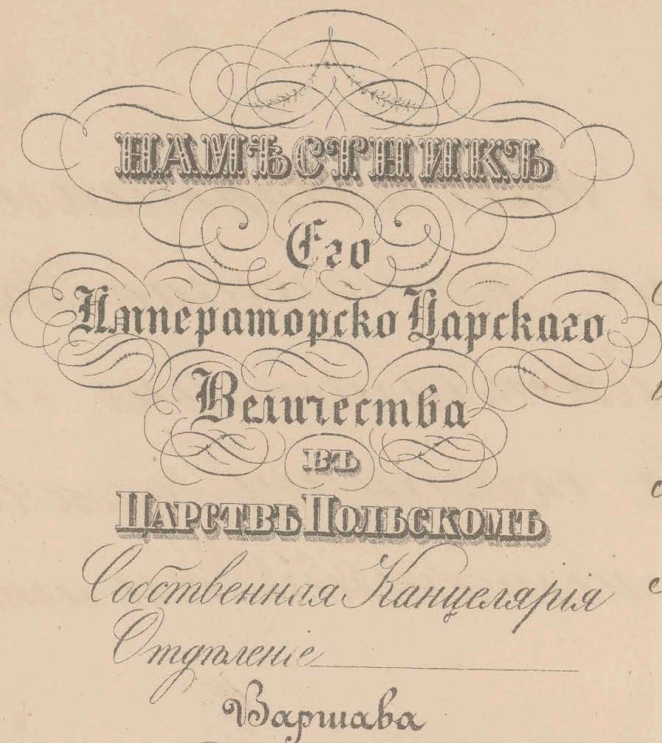 НАМѢСТНИКЪ
Его
Императорско Царскаго
Величества
ВЪ
ЦАРСТВѢ ПОЛЬСКОМЪ
Собственная Канцелярія
Отдѣленіе
Варшава